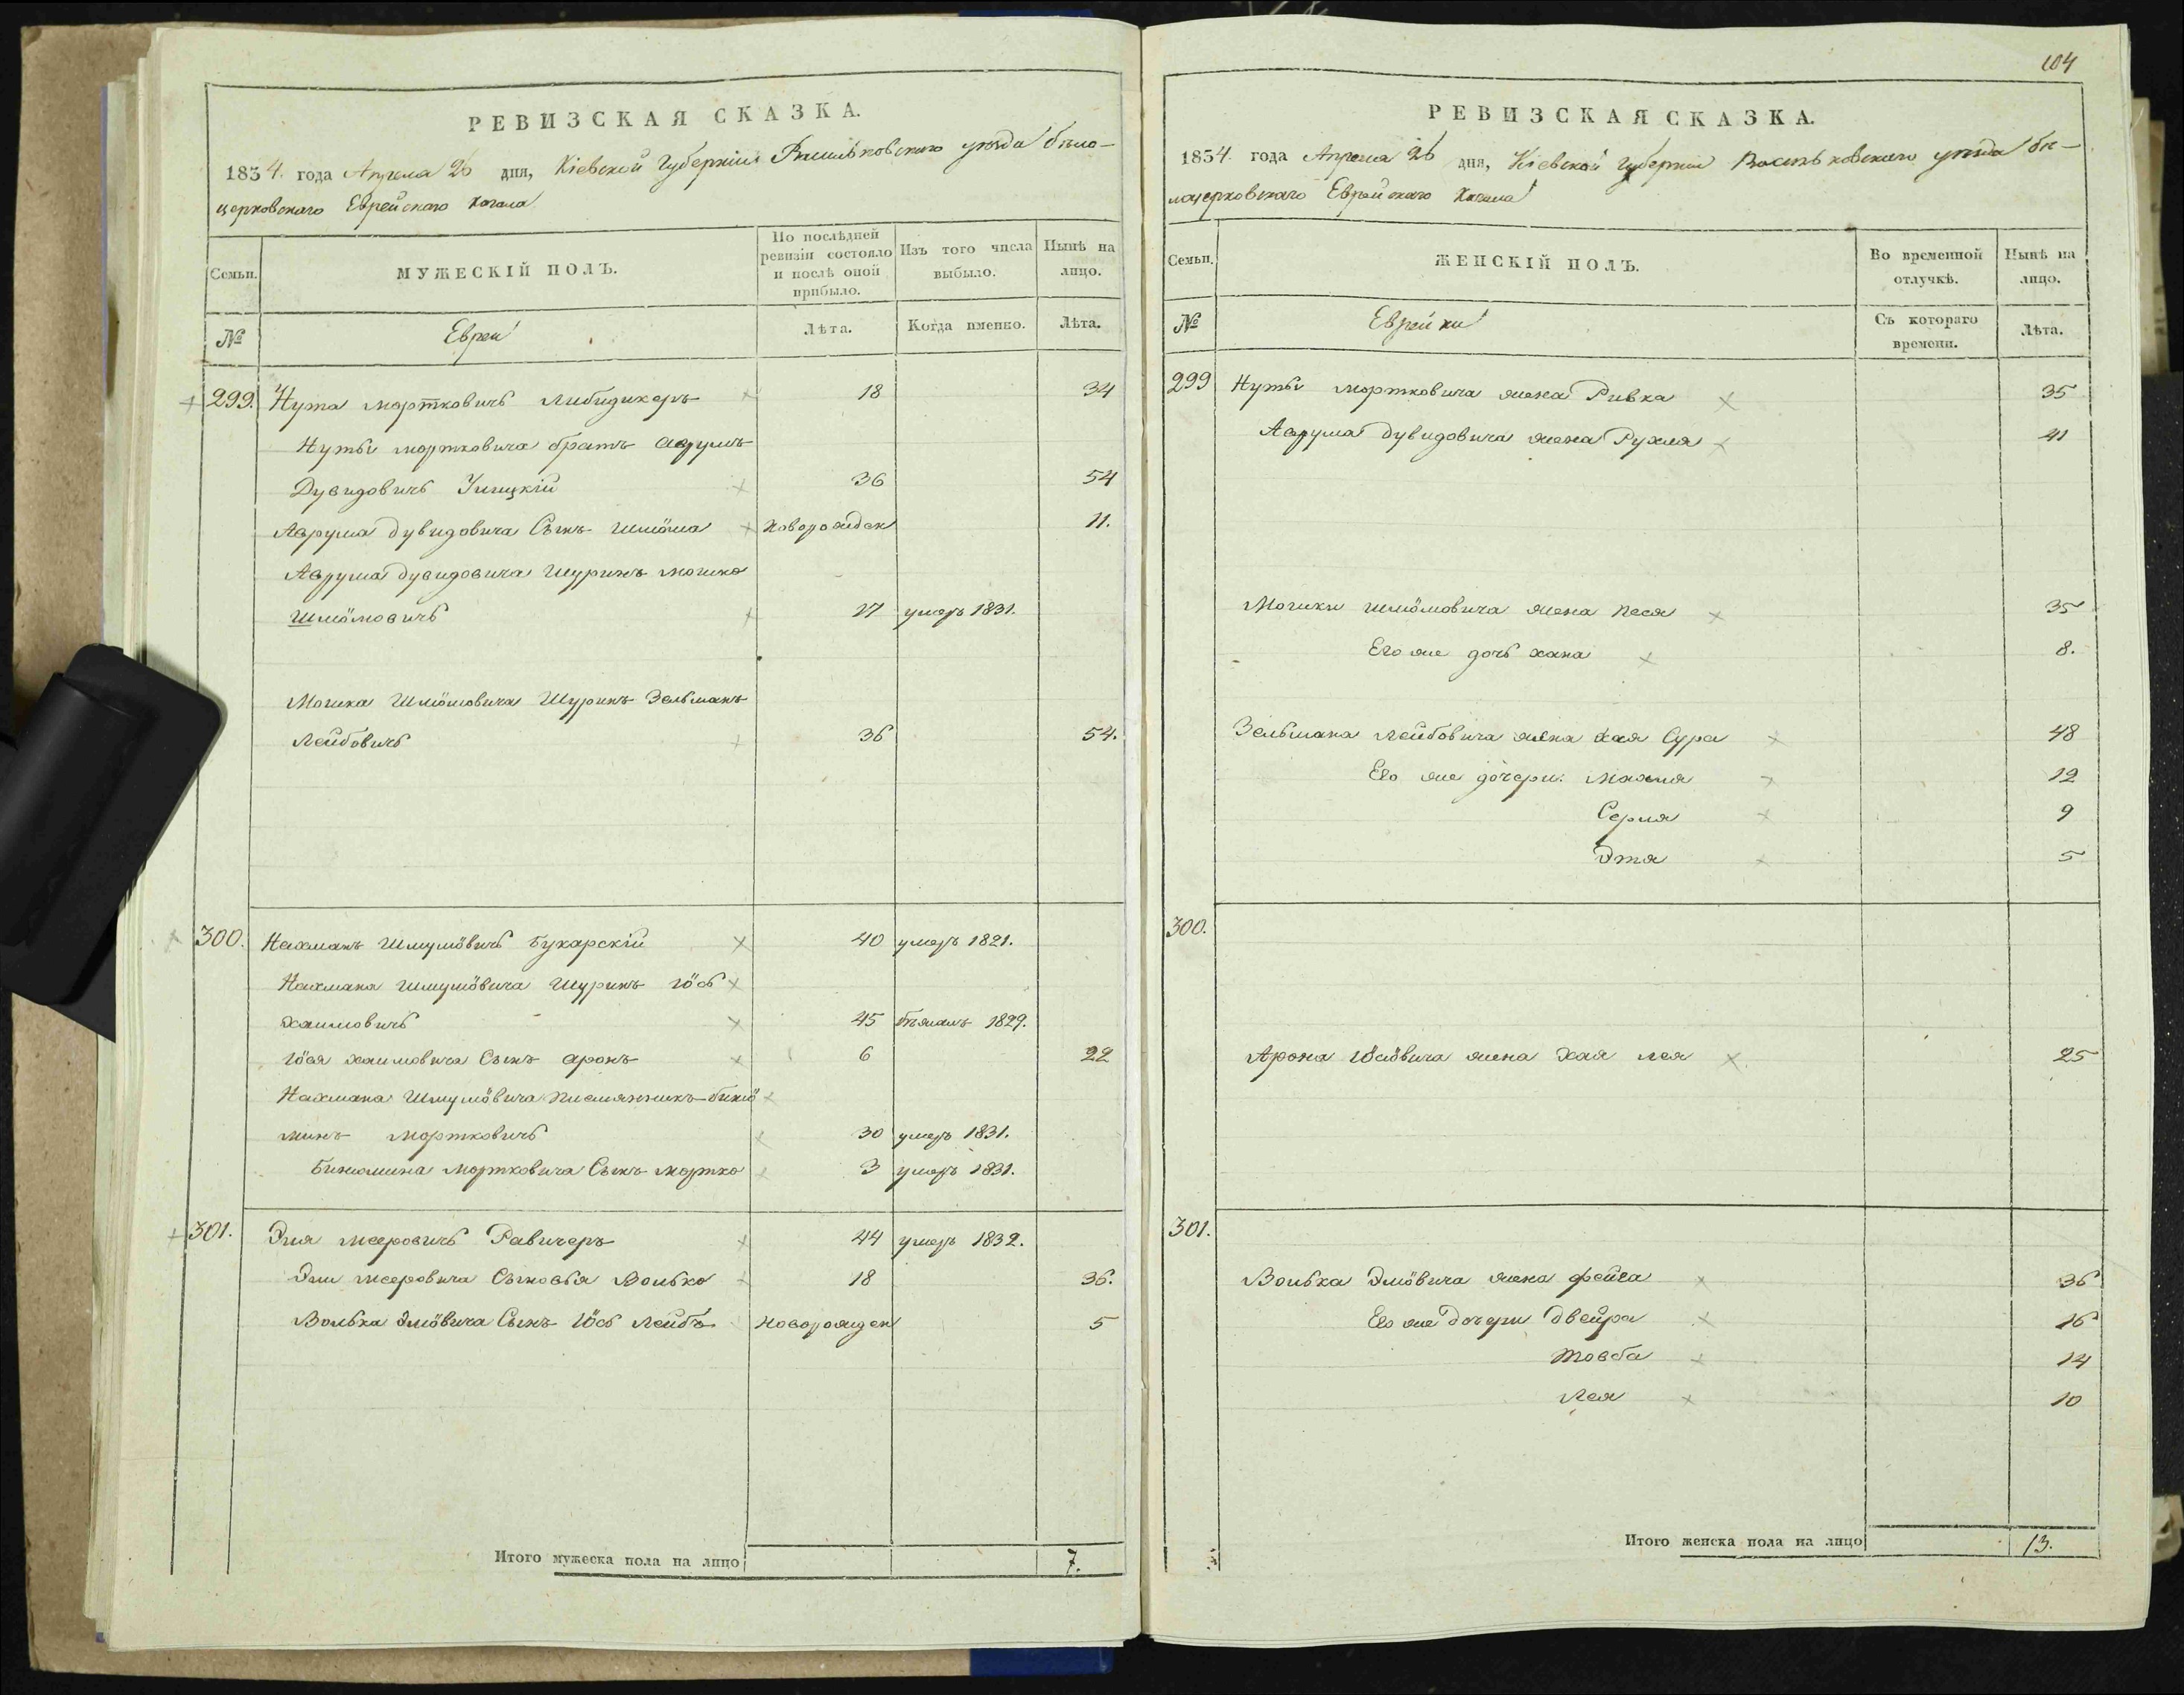 РЕВИЗСКАЯ СКАЗКА.
1834. года Апреля 26 дня, Кіевской Губерніи Васильковского уезда бело-
церковскаго Еврейскаго Кагала
Семьи.
МУЖЕСКІЙ ПОЛЪ.
По послѣдней ревизіи состояло и послѣ оной прибыло.
Изъ того числа выбыло.
Нынѣ на лицо.
№
Евреи
Лѣта.
Когда именно.
Лѣта.
299. Нута Мортковичъ 18 34
Нуты Мортковича братъ Аврумъ
Дувидовичъ 36 54
Аврума Дувидовича Сынъ Шлёма Новорожден 11.
Аврума Дувидовича Шуринъ Мошко
Шлёмовичъ 17 умеръ 1831.
Мошка Шлёмовича Шуринъ Зельманъ
Лейбовичъ 36 54.
300. Нахманъ Шмулёвичъ Букарскій 40 умеръ 1821.
Нахмана Шмулёвича Шуринъ Іось
Хаимовичъ 45 бежалъ 1829.
Іося Хаимовича Сынъ Аронъ 6 22
Нахмана Шмулёвича Племянникъ Биню
минъ Мортковичъ 30 умеръ 1831.
Бинюмина Мортковича Сынъ Мортко 3 умеръ 1831.
301. Эля Мееровичъ Равичеръ 44 умеръ 1832.
Эли Мееровича Сыновья Волько 18 36.
Волька Элёвича Сынъ Іось Лейбъ Новорожден 5
Итого мужеска пола на лицо 7.
104
РЕВИЗСКАЯ СКАЗКА.
1834. года Апреля 26 дня, Кіевской Губерніи Васильковскаго уезда бе-
лоцерковскаго Еврейскаго Кагала
Семьи.
ЖЕНСКІЙ ПОЛЪ.
Во временной отлучкѣ.
Нынѣ на лицо.
№
Еврейки
Съ котораго времени.
Лѣта.
299 Нуты Мортковича жена Ривка 35
Аврума Дувидовича жена Рухля 41
Мошки Шлёмовича жена Песя 35
Его же дочь Хана 8.
Зельмана Лейбовича жена Хая Сура 48
Его же дочери: Махля 12
Серля 9
Этя 5
300.
Арона Іосёвича жена Хая Лея 25
301.
Волька Элёвича жена Фейга 36
Его же Дочери Двейра 16
Товба 14
Лея 10
Итого женска пола на лицо 13.